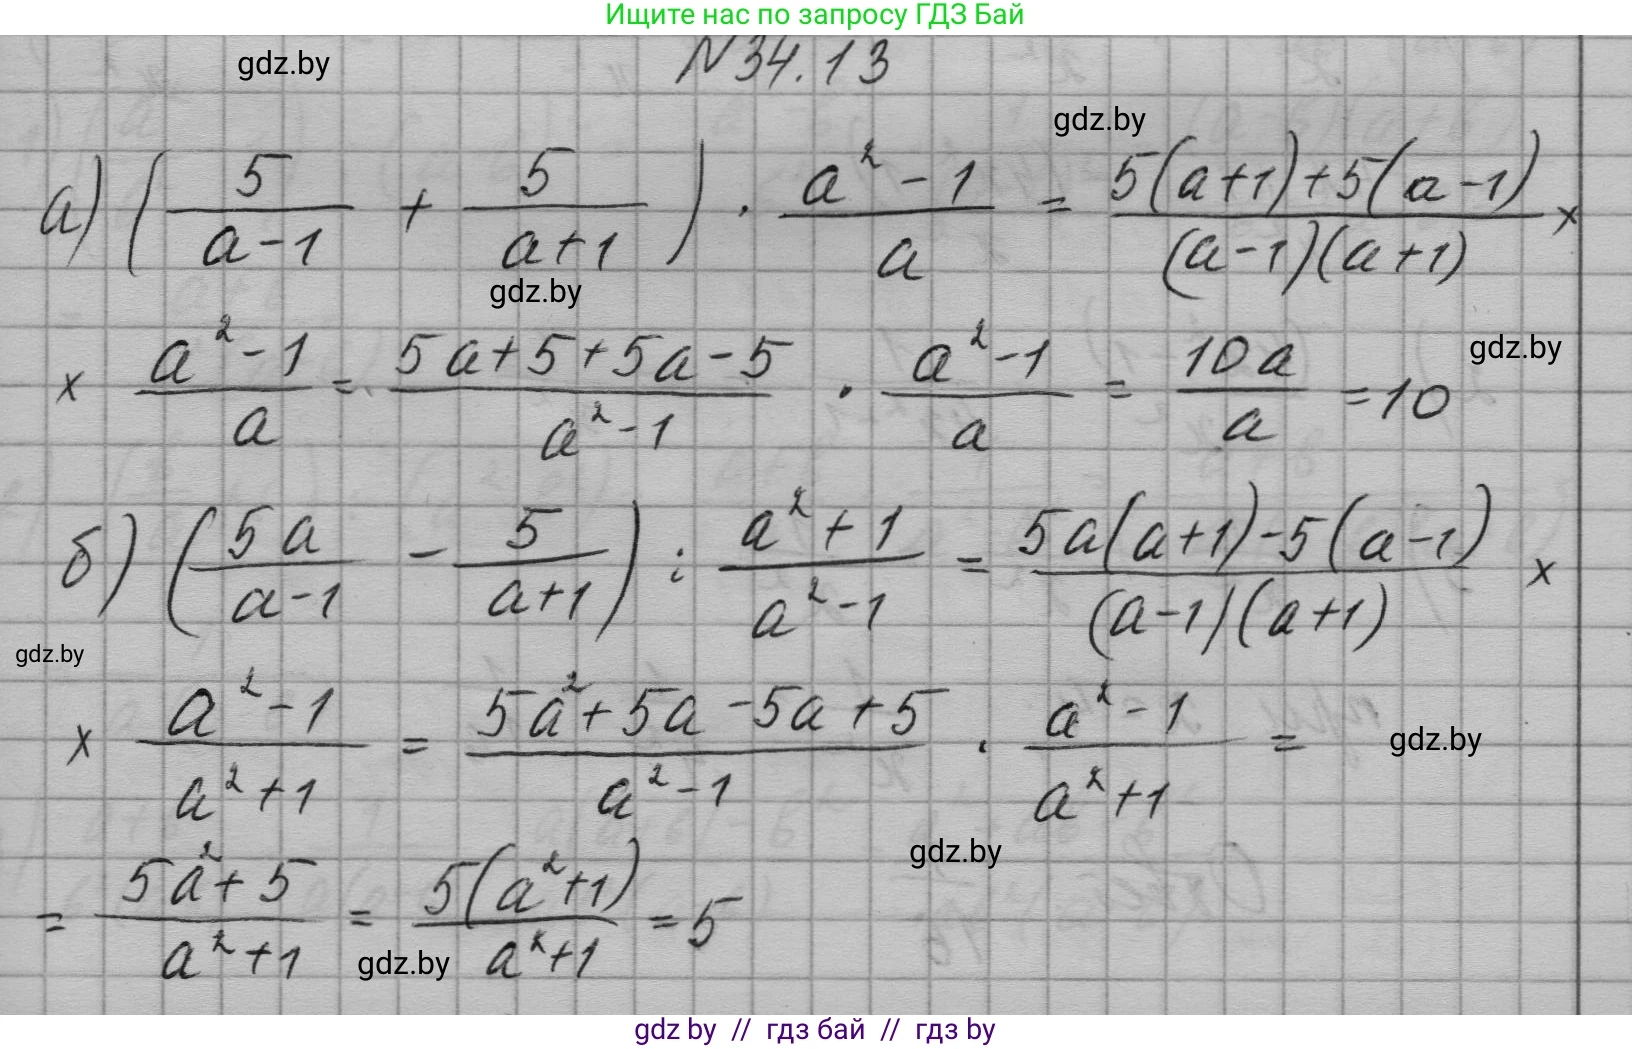 Ищите нас по запросу ГДЗ Бай
gdz.by
N34.13
gdz.by
а) (5/(a-1) + 5/(a+1)) · (a²-1)/a = (5(a+1)+5(a-1))/((a-1)(a+1)) ×
gdz.by
× (a²-1)/a = (5a+5+5a-5)/(a²-1) · (a²-1)/a = 10a/a = 10
gdz.by
б) (5a/(a-1) - 5/(a+1)) : (a²+1)/(a²-1) = (5a(a+1)-5(a-1))/((a-1)(a+1)) ×
gdz.by
× (a²-1)/(a²+1) = (5a²+5a-5a+5)/(a²-1) · (a²-1)/(a²+1) =
gdz.by
gdz.by
= (5a²+5)/(a²+1) = 5(a²+1)/(a²+1) = 5
gdz.by
gdz by // гдз бай // гдз by